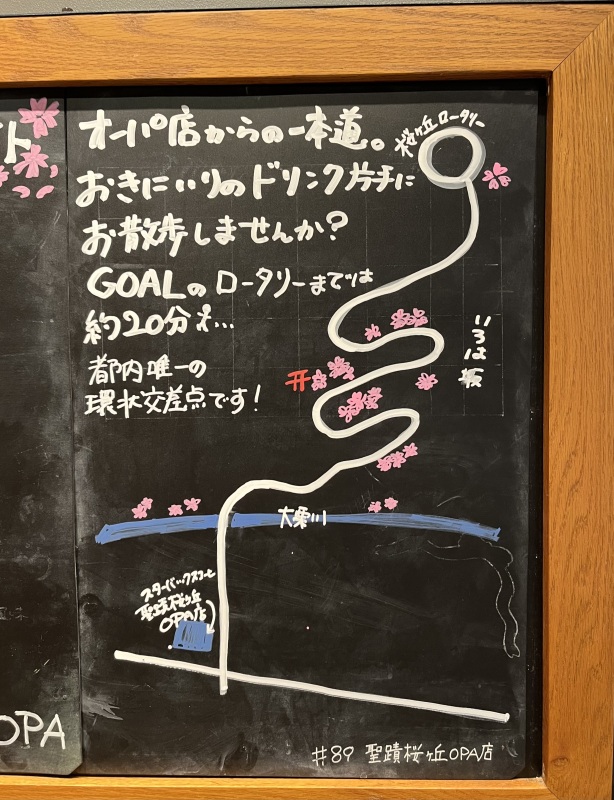 ト
オーパ店からの一本道。
おきにいりのドリンク片手に
お散歩しませんか?
GOALのロータリーまでは
約20分...
都内唯一の
環状交差点です!
桜ヶ丘ロータリー
いろは坂
大栗川
スターバックスコーヒー
聖蹟桜ヶ丘
OPA店
OPA
#89 聖蹟桜ヶ丘OPA店